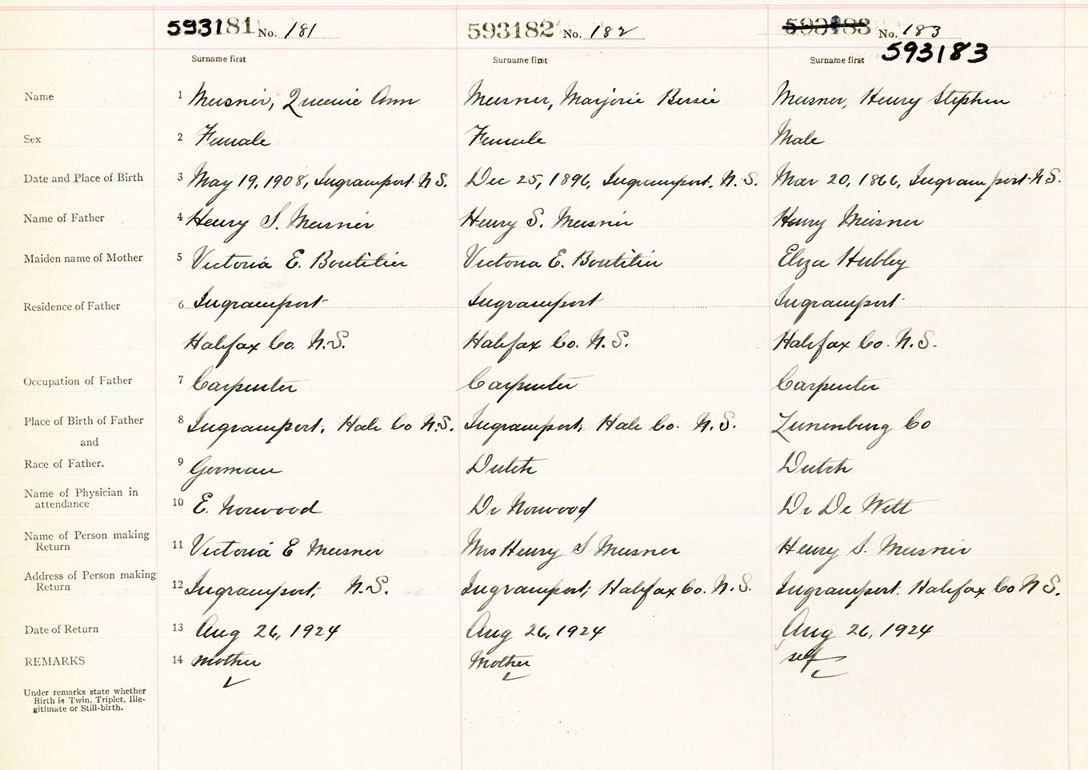 593181 No. 181 593182 No. 182 593183 No. 183
593183
Surname first Surname first Surname first
Name 1 Meisner, Queenie Ann Meisner, Marjorie Bessie Meisner, Henry Stephen
Sex 2 Female Female Male
Date and Place of Birth 3 May 19, 1908, Ingramport N.S. Dec 25, 1896, Ingramport, N.S. Mar 20, 1866, Ingramport N.S.
Name of Father 4 Henry S. Meisner Henry S. Meisner Henry Meisner
Maiden name of Mother 5 Victoria E. Boutilier Victoria E. Boutilier Eliza Hubley
Residence of Father 6 Ingramport Ingramport Ingramport
Halifax Co. N.S. Halifax Co. N.S. Halifax Co. N.S.
Occupation of Father 7 Carpenter Carpenter Carpenter
Place of Birth of Father 8 Ingramport, Hali Co N.S. Ingramport, Hali Co. N.S. Lunenburg Co
and
Race of Father. 9 German Dutch Dutch
Name of Physician in
attendance 10 E. Norwood Dr Norwood Dr De Witt
Name of Person making
Return 11 Victoria E Meisner Mrs Henry S Meisner Henry S. Meisner
Address of Person making
Return 12 Ingramport, N.S. Ingramport, Halifax Co. N.S. Ingramport. Halifax Co N.S.
Date of Return 13 Aug 26, 1924 Aug 26, 1924 Aug 26, 1924
REMARKS 14 mother Mother self
Under remarks state whether
Birth is Twin, Triplet, Ille-
gitimate or Still-birth.